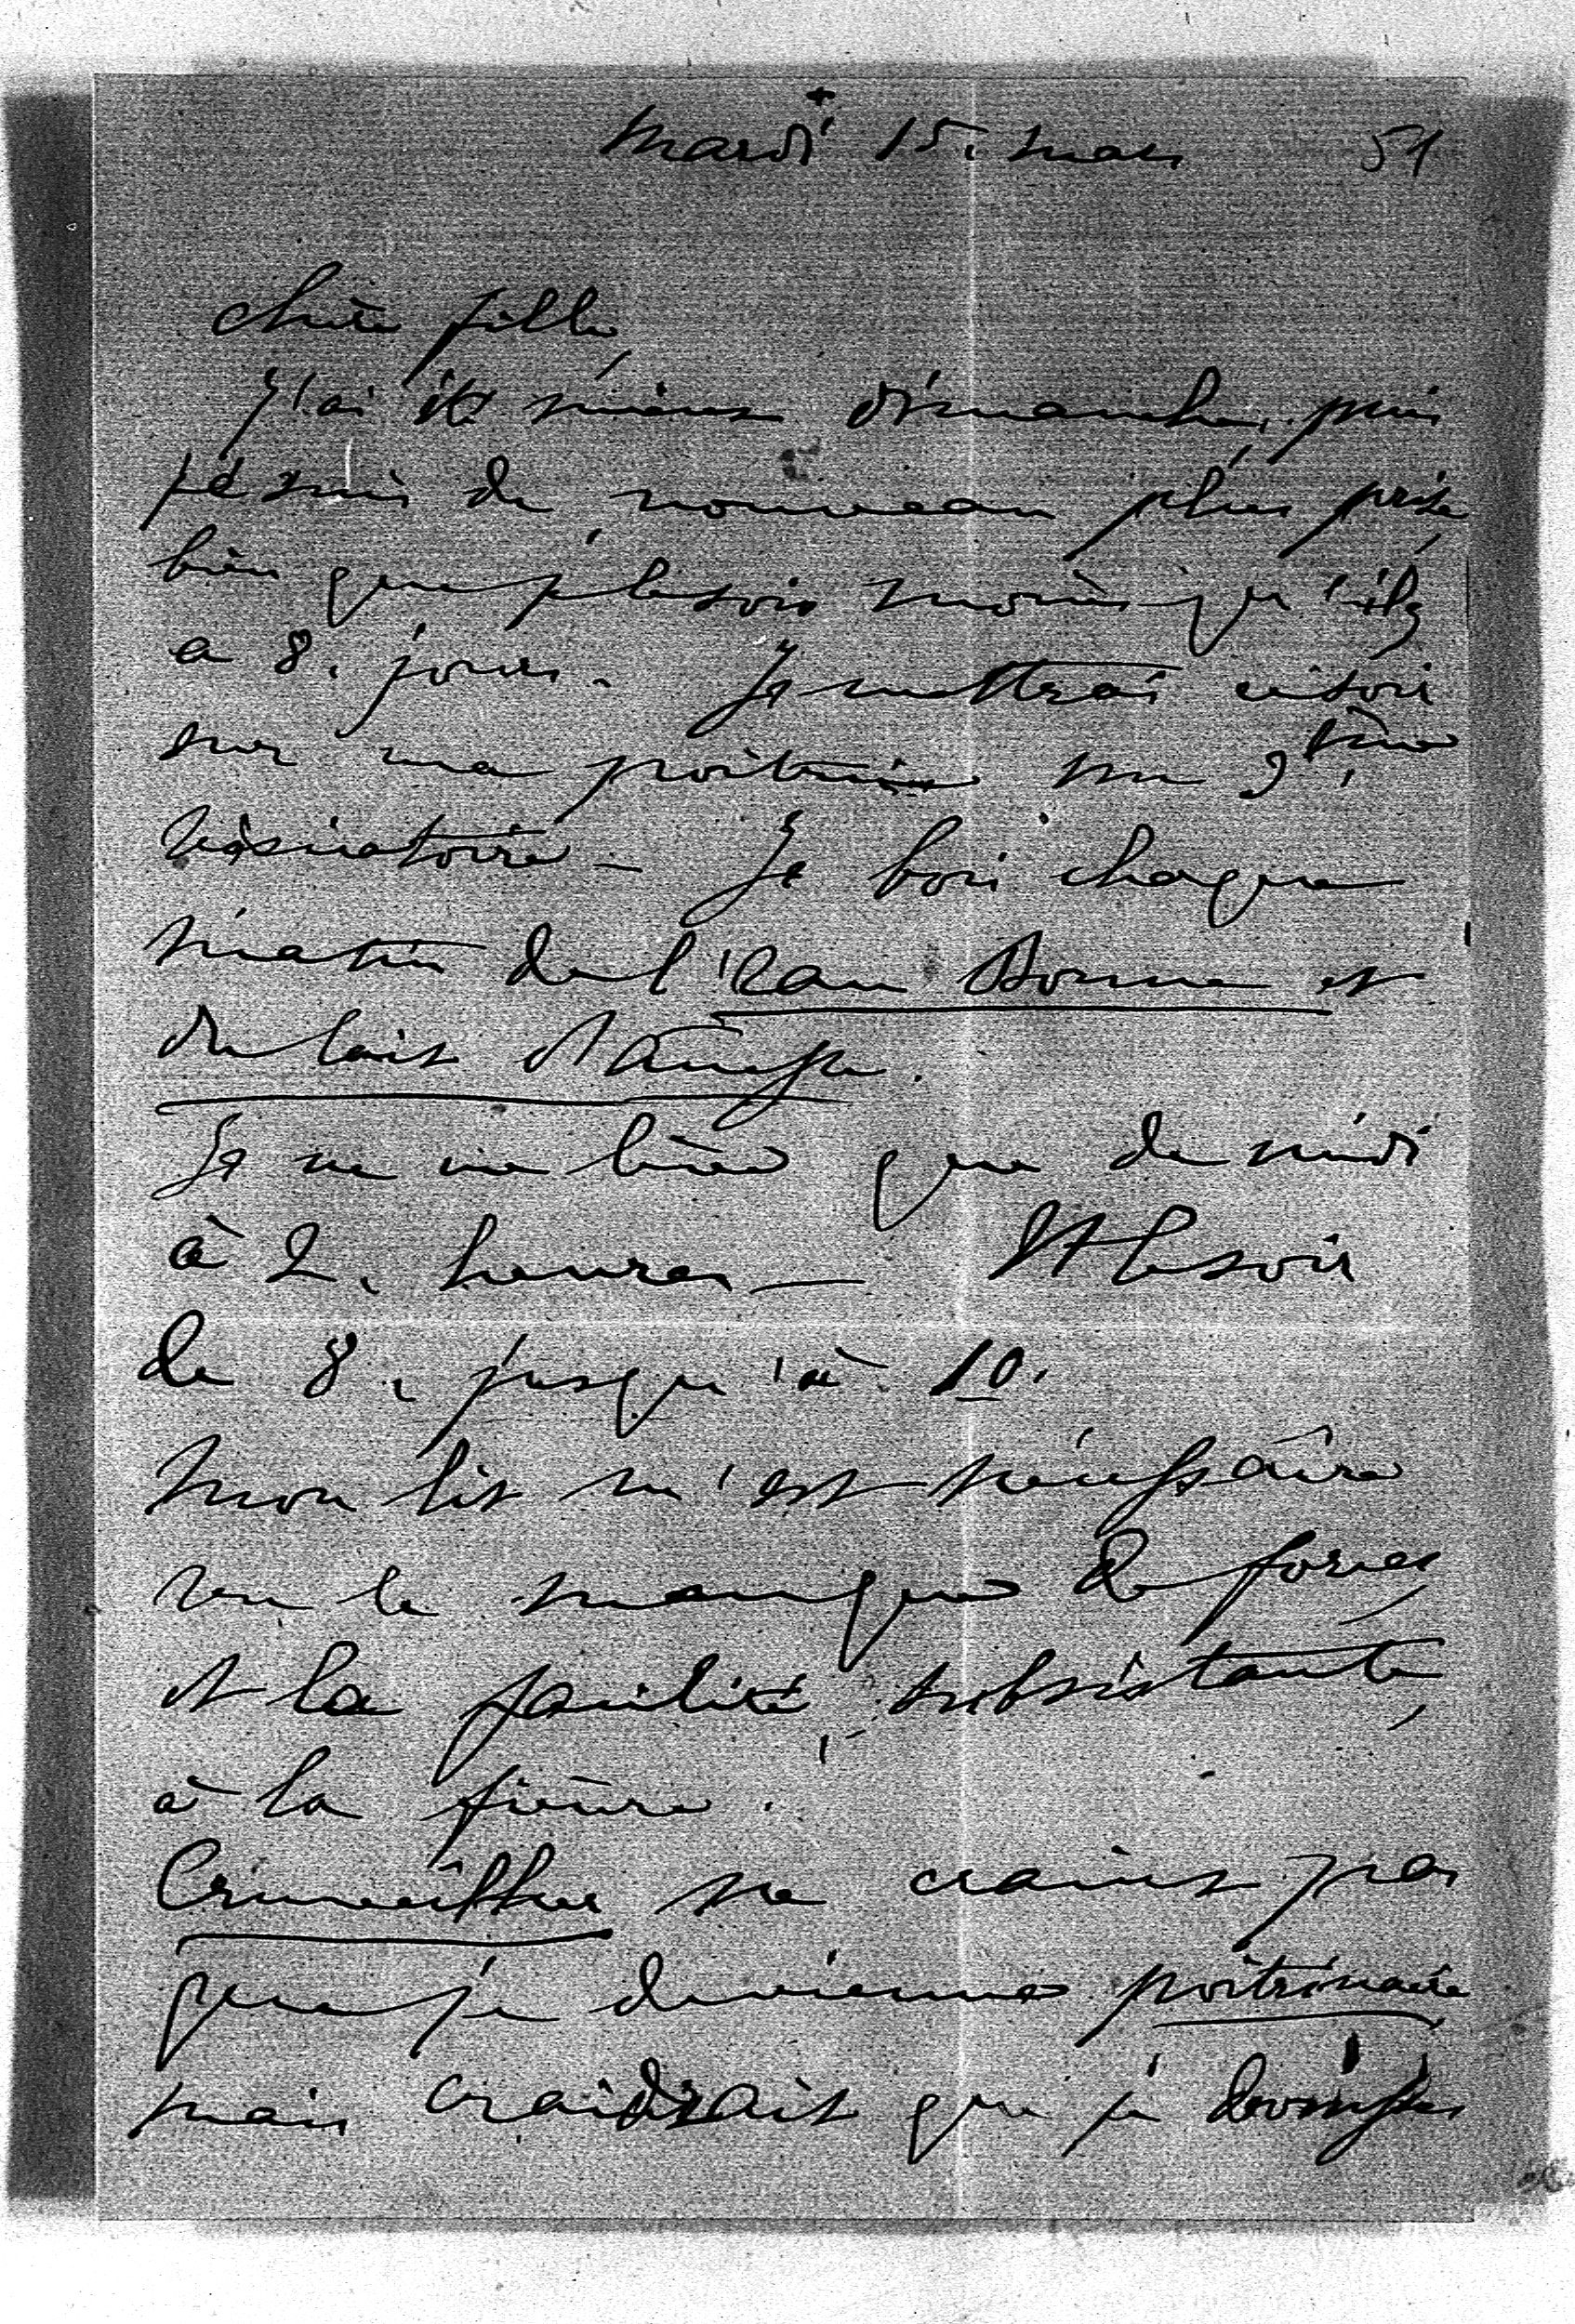 +
mardi 15. mars 51
chère fille,
J'ai été mieux dimanche, puis
je suis de nouveau plus prise
bien que je le sois moins qu'il y
a 8. jours. Je mettrai ce soir
sur ma poitrine un 9ième
vésicatoire – Je bois chaque
matin de l'eau Bonne et
du lait d'ânesse.
Je ne me lève que de midi
à 2. heures — Et le soir
de 8. jusqu'à 10.
Mon lit m'est nécessaire
vu le manque de forces,
et la facilité, subsistante,
à la fièvre.
Cruveilher ne craint pas
que je devienne poitrinaire
mais craidrait que je